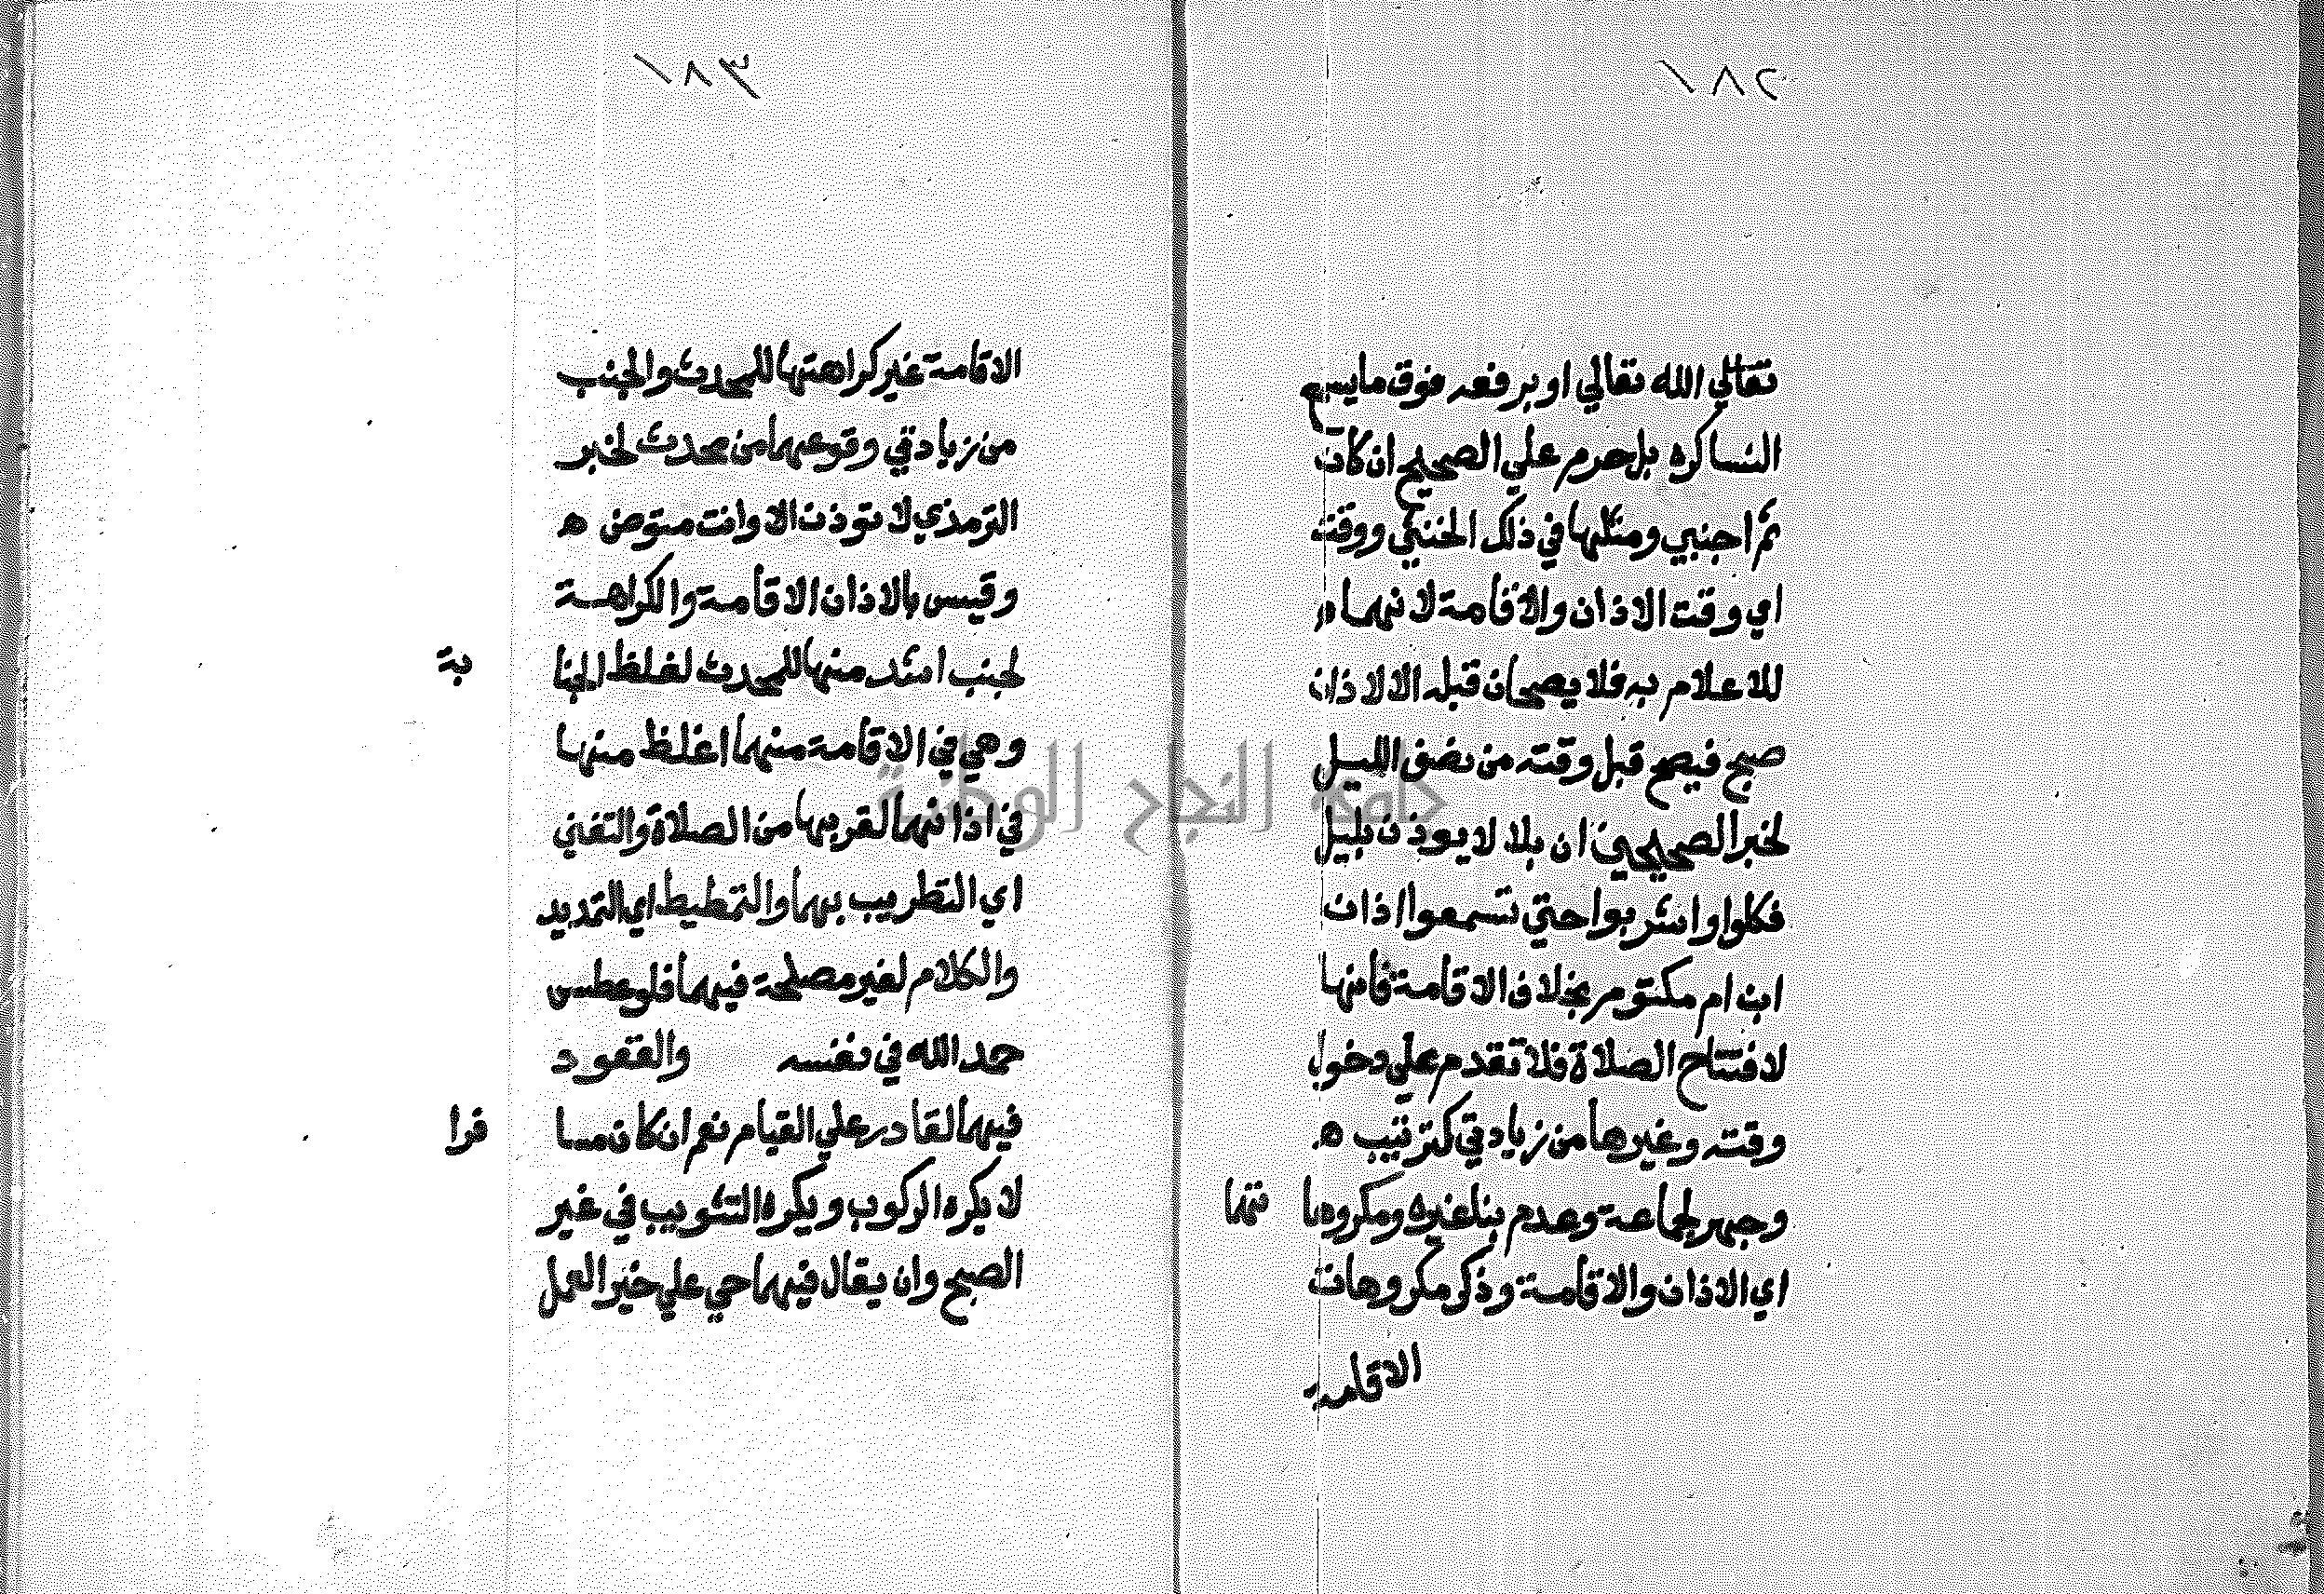 ١٨٢
تعالي الله تعالي او برفعه فوق ما يسمع
النسا كره بل حرم علي الصحيح ان كان
ثم اجنبي ومثلها في ذلك الخنثي ووقت
اي وقت الاذان والاقامة لانهما
للاعلام به فلا يصحان قبله الا الاذان
صبح فيصح قبل وقته من نصف الليل
لخبر الصحيحين ان بلالا يوذن بليل
فكلوا واشربوا حتي تسمعوا اذان
ابن ام مكتوم بخلاف الاقامة فانها
لافتتاح الصلاة فلا تقدم علي دخول
وقته وغيرها من زيادتي كترتيب ه
وجهر لجماعة وعدم بنا غيره ومكروها تهما
اي الاذان والاقامة وذكر مكروهات
الاقامة
١٨٣
الاقامة غير كراهتها للمحدث والجنب
من زيادتي وقوعهما من محدث لخبر
الترمذي لا توذن الا وانت متوض ه
وقيس بالاذان الاقامة والكراهة
لجنب اشد منها للمحدث لغلظ الجنا بة
وهي في الاقامة منهما اغلظ منها
في اذانهما لقربها من الصلاة والتغني
اي التطريب بهما والتمطيط اي التمديد
والكلام لغير مصلحة فيهما فلو عطس
حمد الله في نفسه والقعود
فيهما لقادر علي القيام نعم ان كان مسا فرا
لا يكره الركوب ويكره التثويب في غير
الصبح وان يقال فيهما حي علي خير العمل
جامعة النجاح الوطنية